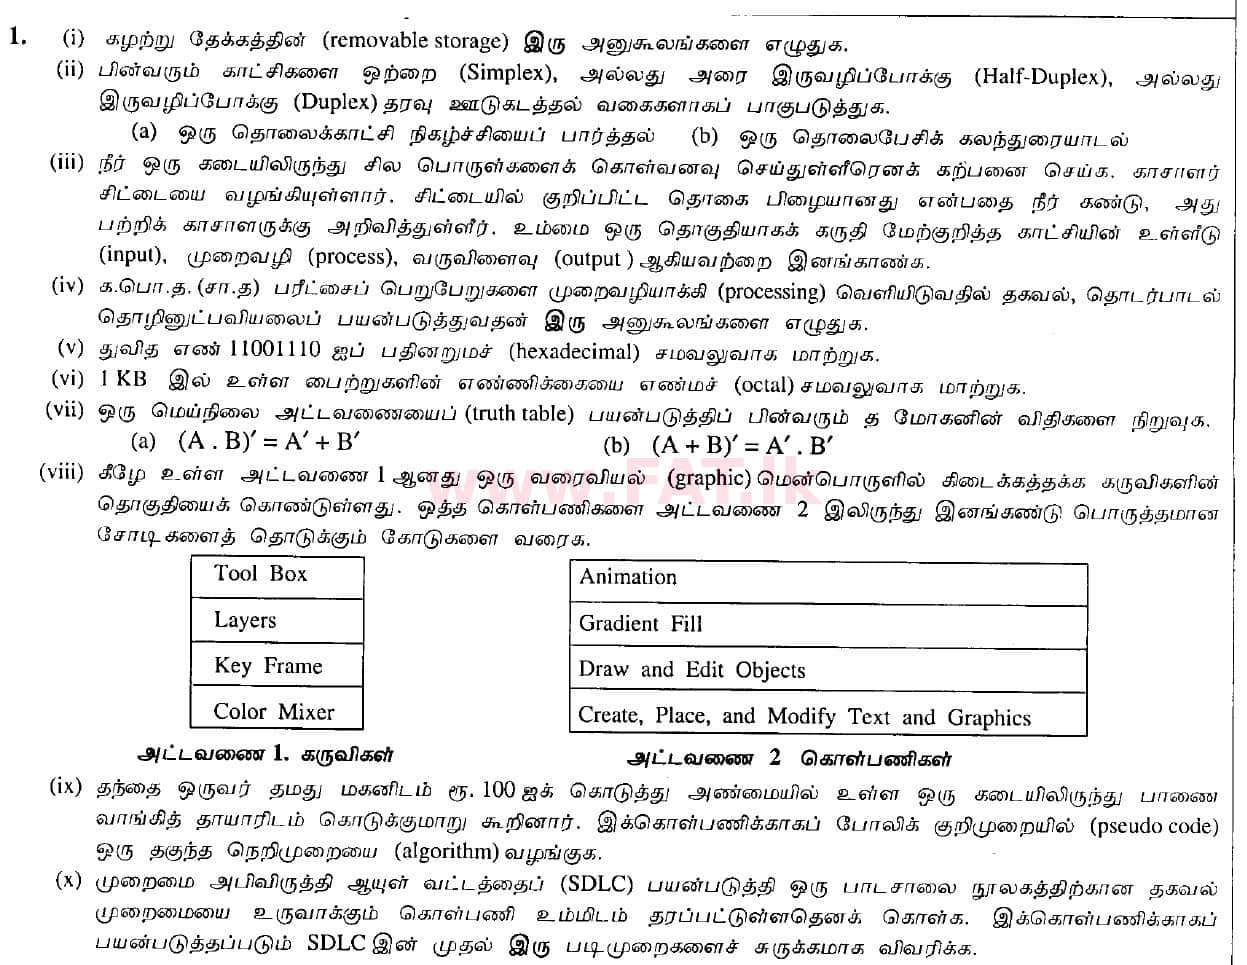 1. (i) கழற்று தேக்கத்தின் (removable storage) இரு அனுகூலங்களை எழுதுக.
(ii) பின்வரும் காட்சிகளை ஒற்றை (Simplex), அல்லது அரை இருவழிப்போக்கு (Half-Duplex), அல்லது
இருவழிப்போக்கு (Duplex) தரவு ஊடுகடத்தல் வகைகளாகப் பாகுபடுத்துக.
(a) ஒரு தொலைக்காட்சி நிகழ்ச்சியைப் பார்த்தல் (b) ஒரு தொலைபேசிக் கலந்துரையாடல்
(iii) நீர் ஒரு கடையிலிருந்து சில பொருள்களைக் கொள்வனவு செய்துள்ளீரெனக் கற்பனை செய்க. காசாளர்
சிட்டையை வழங்கியுள்ளார். சிட்டையில் குறிப்பிட்ட தொகை பிழையானது என்பதை நீர் கண்டு, அது
பற்றிக் காசாளருக்கு அறிவித்துள்ளீர். உம்மை ஒரு தொகுதியாகக் கருதி மேற்குறித்த காட்சியின் உள்ளீடு
(input), முறைவழி (process), வருவிளைவு (output ) ஆகியவற்றை இனங்காண்க.
(iv) க.பொ.த. (சா.த) பரீட்சைப் பெறுபேறுகளை முறைவழியாக்கி (processing) வெளியிடுவதில் தகவல், தொடர்பாடல்
தொழினுட்பவியலைப் பயன்படுத்துவதன் இரு அனுகூலங்களை எழுதுக.
(v) துவித எண் 11001110 ஐப் பதினறுமச் (hexadecimal) சமவலுவாக மாற்றுக.
(vi) 1 KB இல் உள்ள பைற்றுகளின் எண்ணிக்கையை எண்மச் (octal) சமவலுவாக மாற்றுக.
(vii) ஒரு மெய்நிலை அட்டவணையைப் (truth table) பயன்படுத்திப் பின்வரும் த மோகனின் விதிகளை நிறுவுக.
(a) (A . B)′ = A′ + B′ (b) (A + B)′ = A′ . B′
(viii) கீழே உள்ள அட்டவணை 1 ஆனது ஒரு வரைவியல் (graphic) மென்பொருளில் கிடைக்கத்தக்க கருவிகளின்
தொகுதியைக் கொண்டுள்ளது. ஒத்த கொள்பணிகளை அட்டவணை 2 இலிருந்து இனங்கண்டு பொருத்தமான
சோடிகளைத் தொடுக்கும் கோடுகளை வரைக.
www.FAT.lk
Tool Box
Layers
Key Frame
Color Mixer
அட்டவணை 1. கருவிகள்
Animation
Gradient Fill
Draw and Edit Objects
Create, Place, and Modify Text and Graphics
அட்டவணை 2 கொள்பணிகள்
(ix) தந்தை ஒருவர் தமது மகனிடம் ரூ. 100 ஐக் கொடுத்து அண்மையில் உள்ள ஒரு கடையிலிருந்து பாணை
வாங்கித் தாயாரிடம் கொடுக்குமாறு கூறினார். இக்கொள்பணிக்காகப் போலிக் குறிமுறையில் (pseudo code)
ஒரு தகுந்த நெறிமுறையை (algorithm) வழங்குக.
(x) முறைமை அபிவிருத்தி ஆயுள் வட்டத்தைப் (SDLC) பயன்படுத்தி ஒரு பாடசாலை நூலகத்திற்கான தகவல்
முறைமையை உருவாக்கும் கொள்பணி உம்மிடம் தரப்பட்டுள்ளதெனக் கொள்க. இக்கொள்பணிக்காகப்
பயன்படுத்தப்படும் SDLC இன் முதல் இரு படிமுறைகளைச் சுருக்கமாக விவரிக்க.